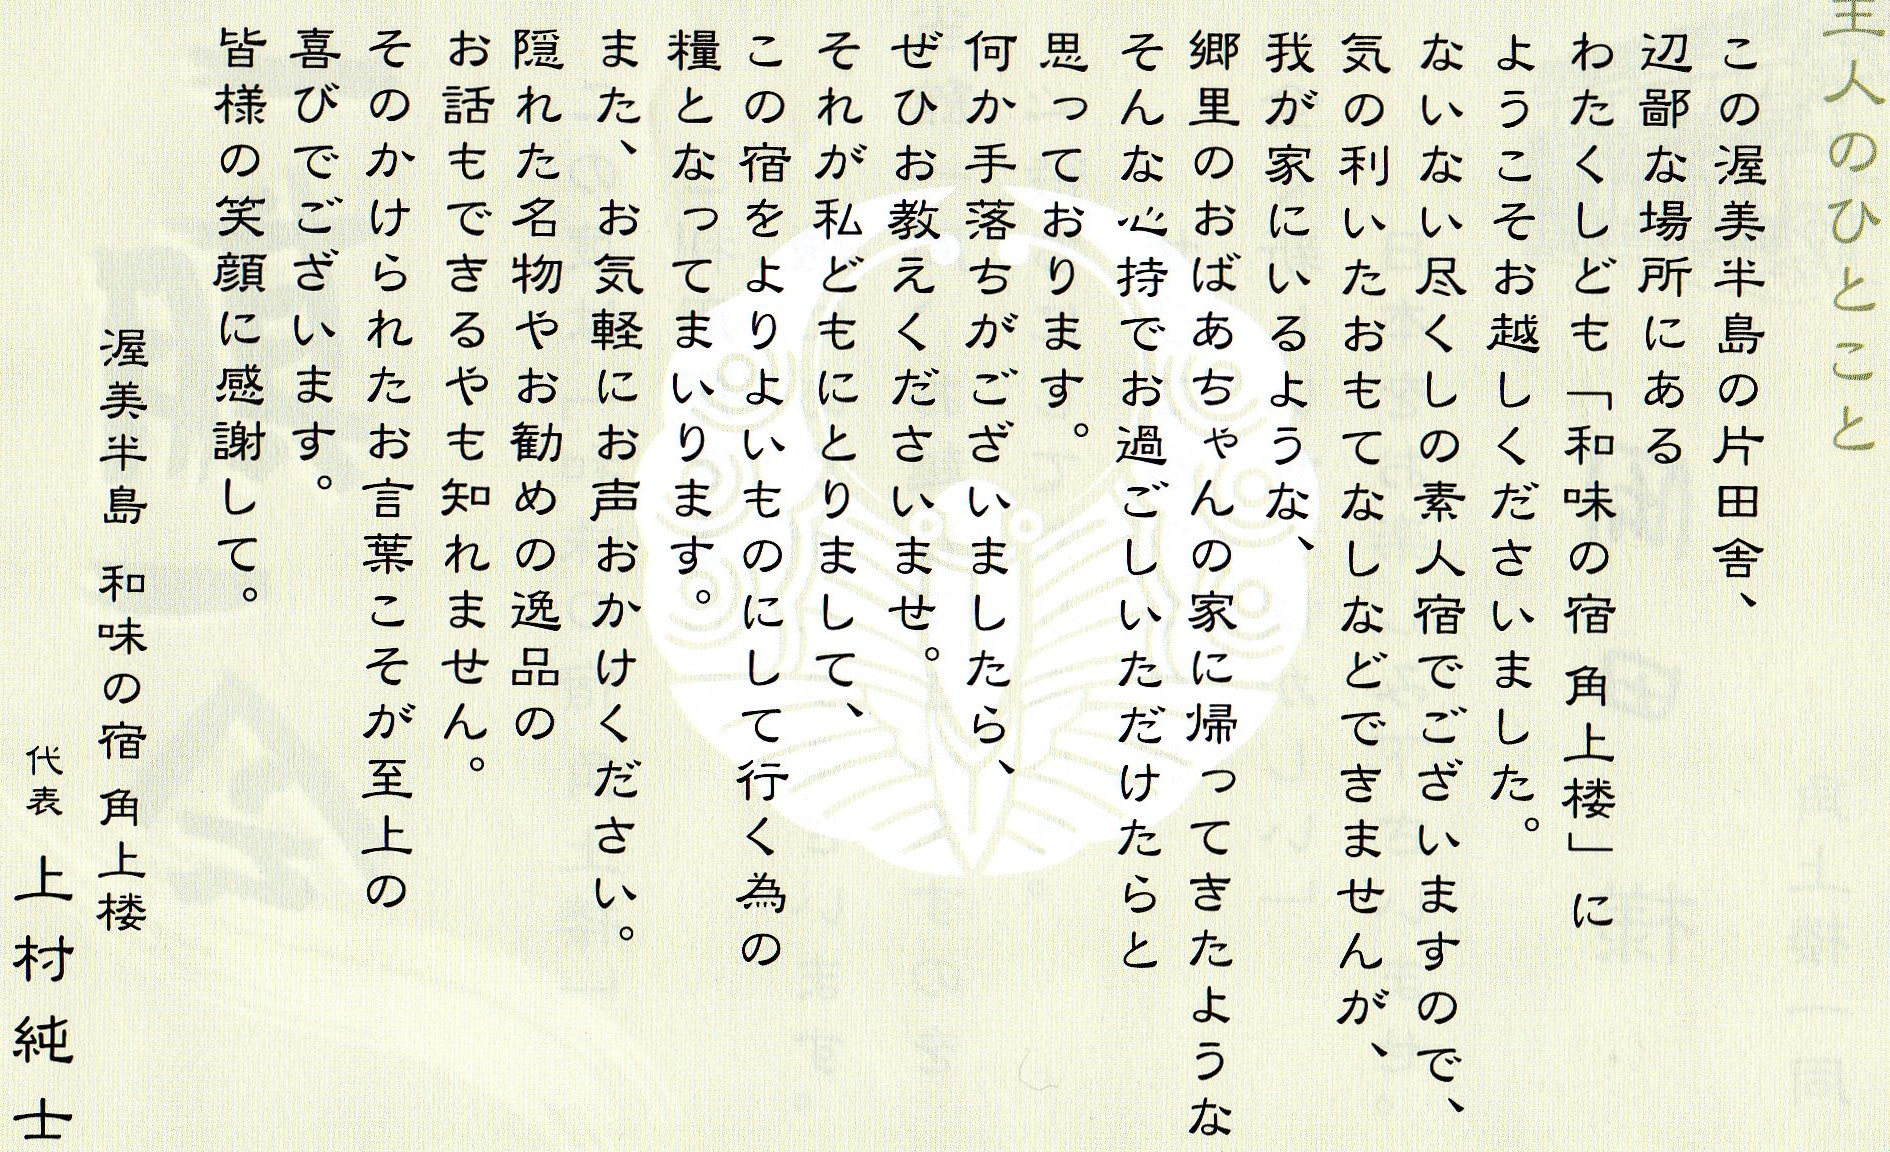 主人のひとこと
この渥美半島の片田舎、
辺鄙な場所にある
わたくしども「和味の宿 角上楼」に
ようこそお越しくださいました。
ないない尽くしの素人宿でございますので、
気の利いたおもてなしなどできませんが、
我が家にいるような、
郷里のおばあちゃんの家に帰ってきたような
そんな心持でお過ごしいただけたらと
思っております。
何か手落ちがございましたら、
ぜひお教えくださいませ。
それが私どもにとりまして、
この宿をよりよいものにして行く為の
糧となってまいります。
また、お気軽にお声おかけください。
隠れた名物やお勧めの逸品の
お話もできるやも知れません。
そのかけられたお言葉こそが至上の
喜びでございます。
皆様の笑顔に感謝して。
渥美半島 和味の宿 角上楼
代表 上村純士